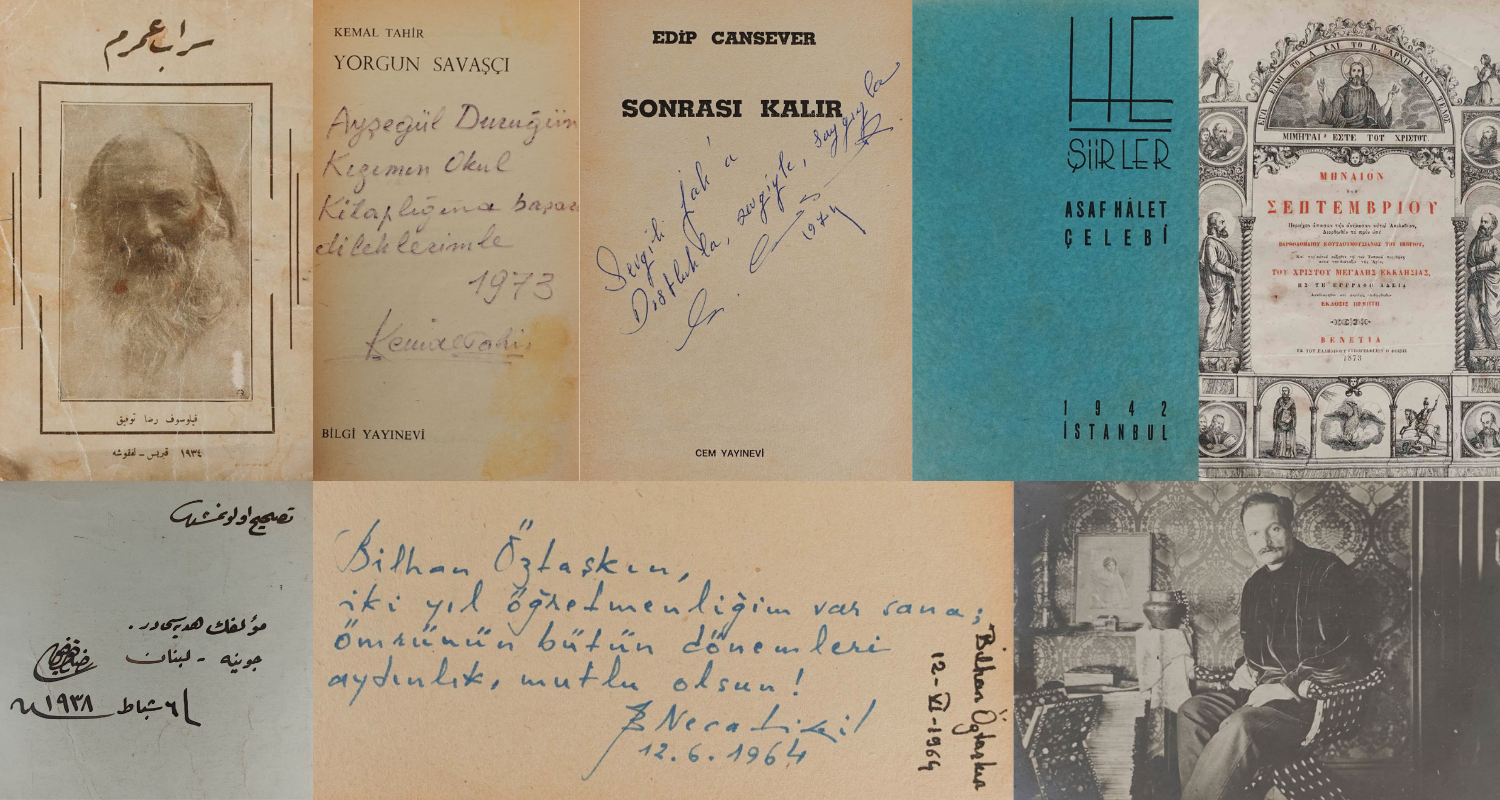 سراب عمرم
فیلسوف رضا توفیق
۱۹۳٤ قبریس ـ لفقوشه
KEMAL TAHİR
YORGUN SAVAŞÇI
Ayşegül Duruğün
Kızımın Okul
Kitaplığına başarı
dileklerimle
1973
Kemal Tahir
BİLGİ YAYINEVİ
EDİP CANSEVER
SONRASI KALIR
Sevgili Jak'a
Dostlukla, sevgiyle, saygıyla
1974
CEM YAYINEVİ
HE
ŞİİRLER
ASAF HÂLET
ÇELEBİ
1942
İSTANBUL
ΕΓΩ ΕΙΜΙ ΤΟ Α ΚΑΙ ΤΟ Ω, ΑΡΧΗ ΚΑΙ ΤΕΛΟΣ
ΜΙΜΗΤΑΙ ΕΣΤΕ ΤΟΥ ΧΡΙΣΤΟΥ
ΜΗΝΑΙΟΝ
ΤΟΥ
ΣΕΠΤΕΜΒΡΙΟΥ
ΒΑΡΘΟΛΟΜΑΙΟΥ ΚΟΥΤΛΟΥΜΟΥΣΙΑΝΟΥ ΤΟΥ ΙΜΒΡΙΟΥ,
ΤΟΥ ΧΡΙΣΤΟΥ ΜΕΓΑΛΗΣ ΕΚΚΛΗΣΙΑΣ,
ΕΚΔΟΣΙΣ ΠΕΜΠΤΗ
ΒΕΝΕΤΙΑ
1873
تصحیح اولونمشدر
مؤلفك هدیه سیدر.
جونیه ـ لبنان
رضا توفیق
١٦ شباط ۱۹۳۸
Bilhan Öztaşkın,
iki yıl öğretmenliğim var sana;
ömrünün bütün dönemleri
aydınlık, mutlu olsun!
B Necatigil
12.6.1964
Bilhan Öztaşkın
12-VI-1964